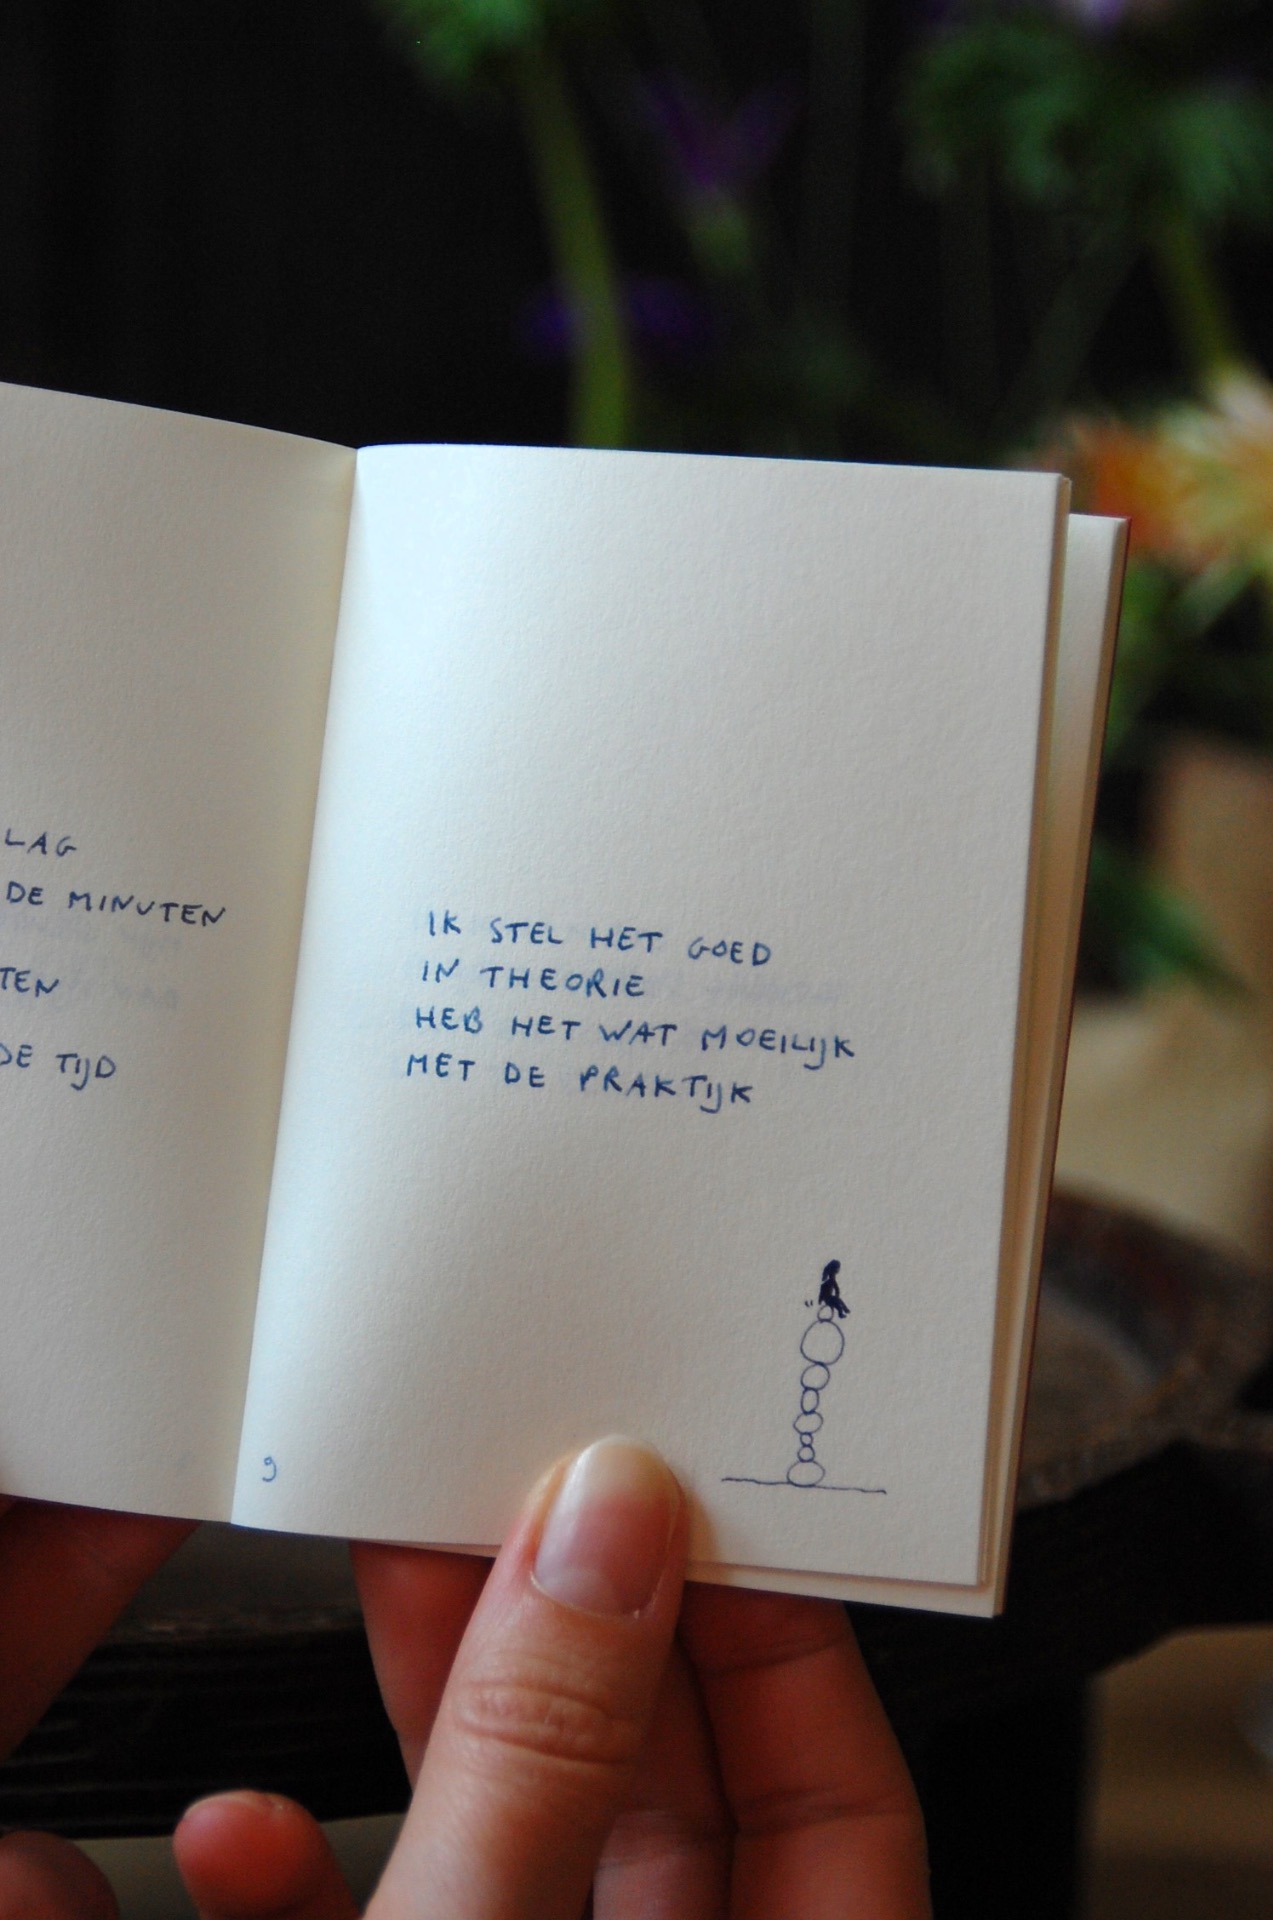 LAG
DE MINUTEN
TEN
DE TIJD
IK STEL HET GOED
IN THEORIE
HEB HET WAT MOEILIJK
MET DE PRAKTIJK
9